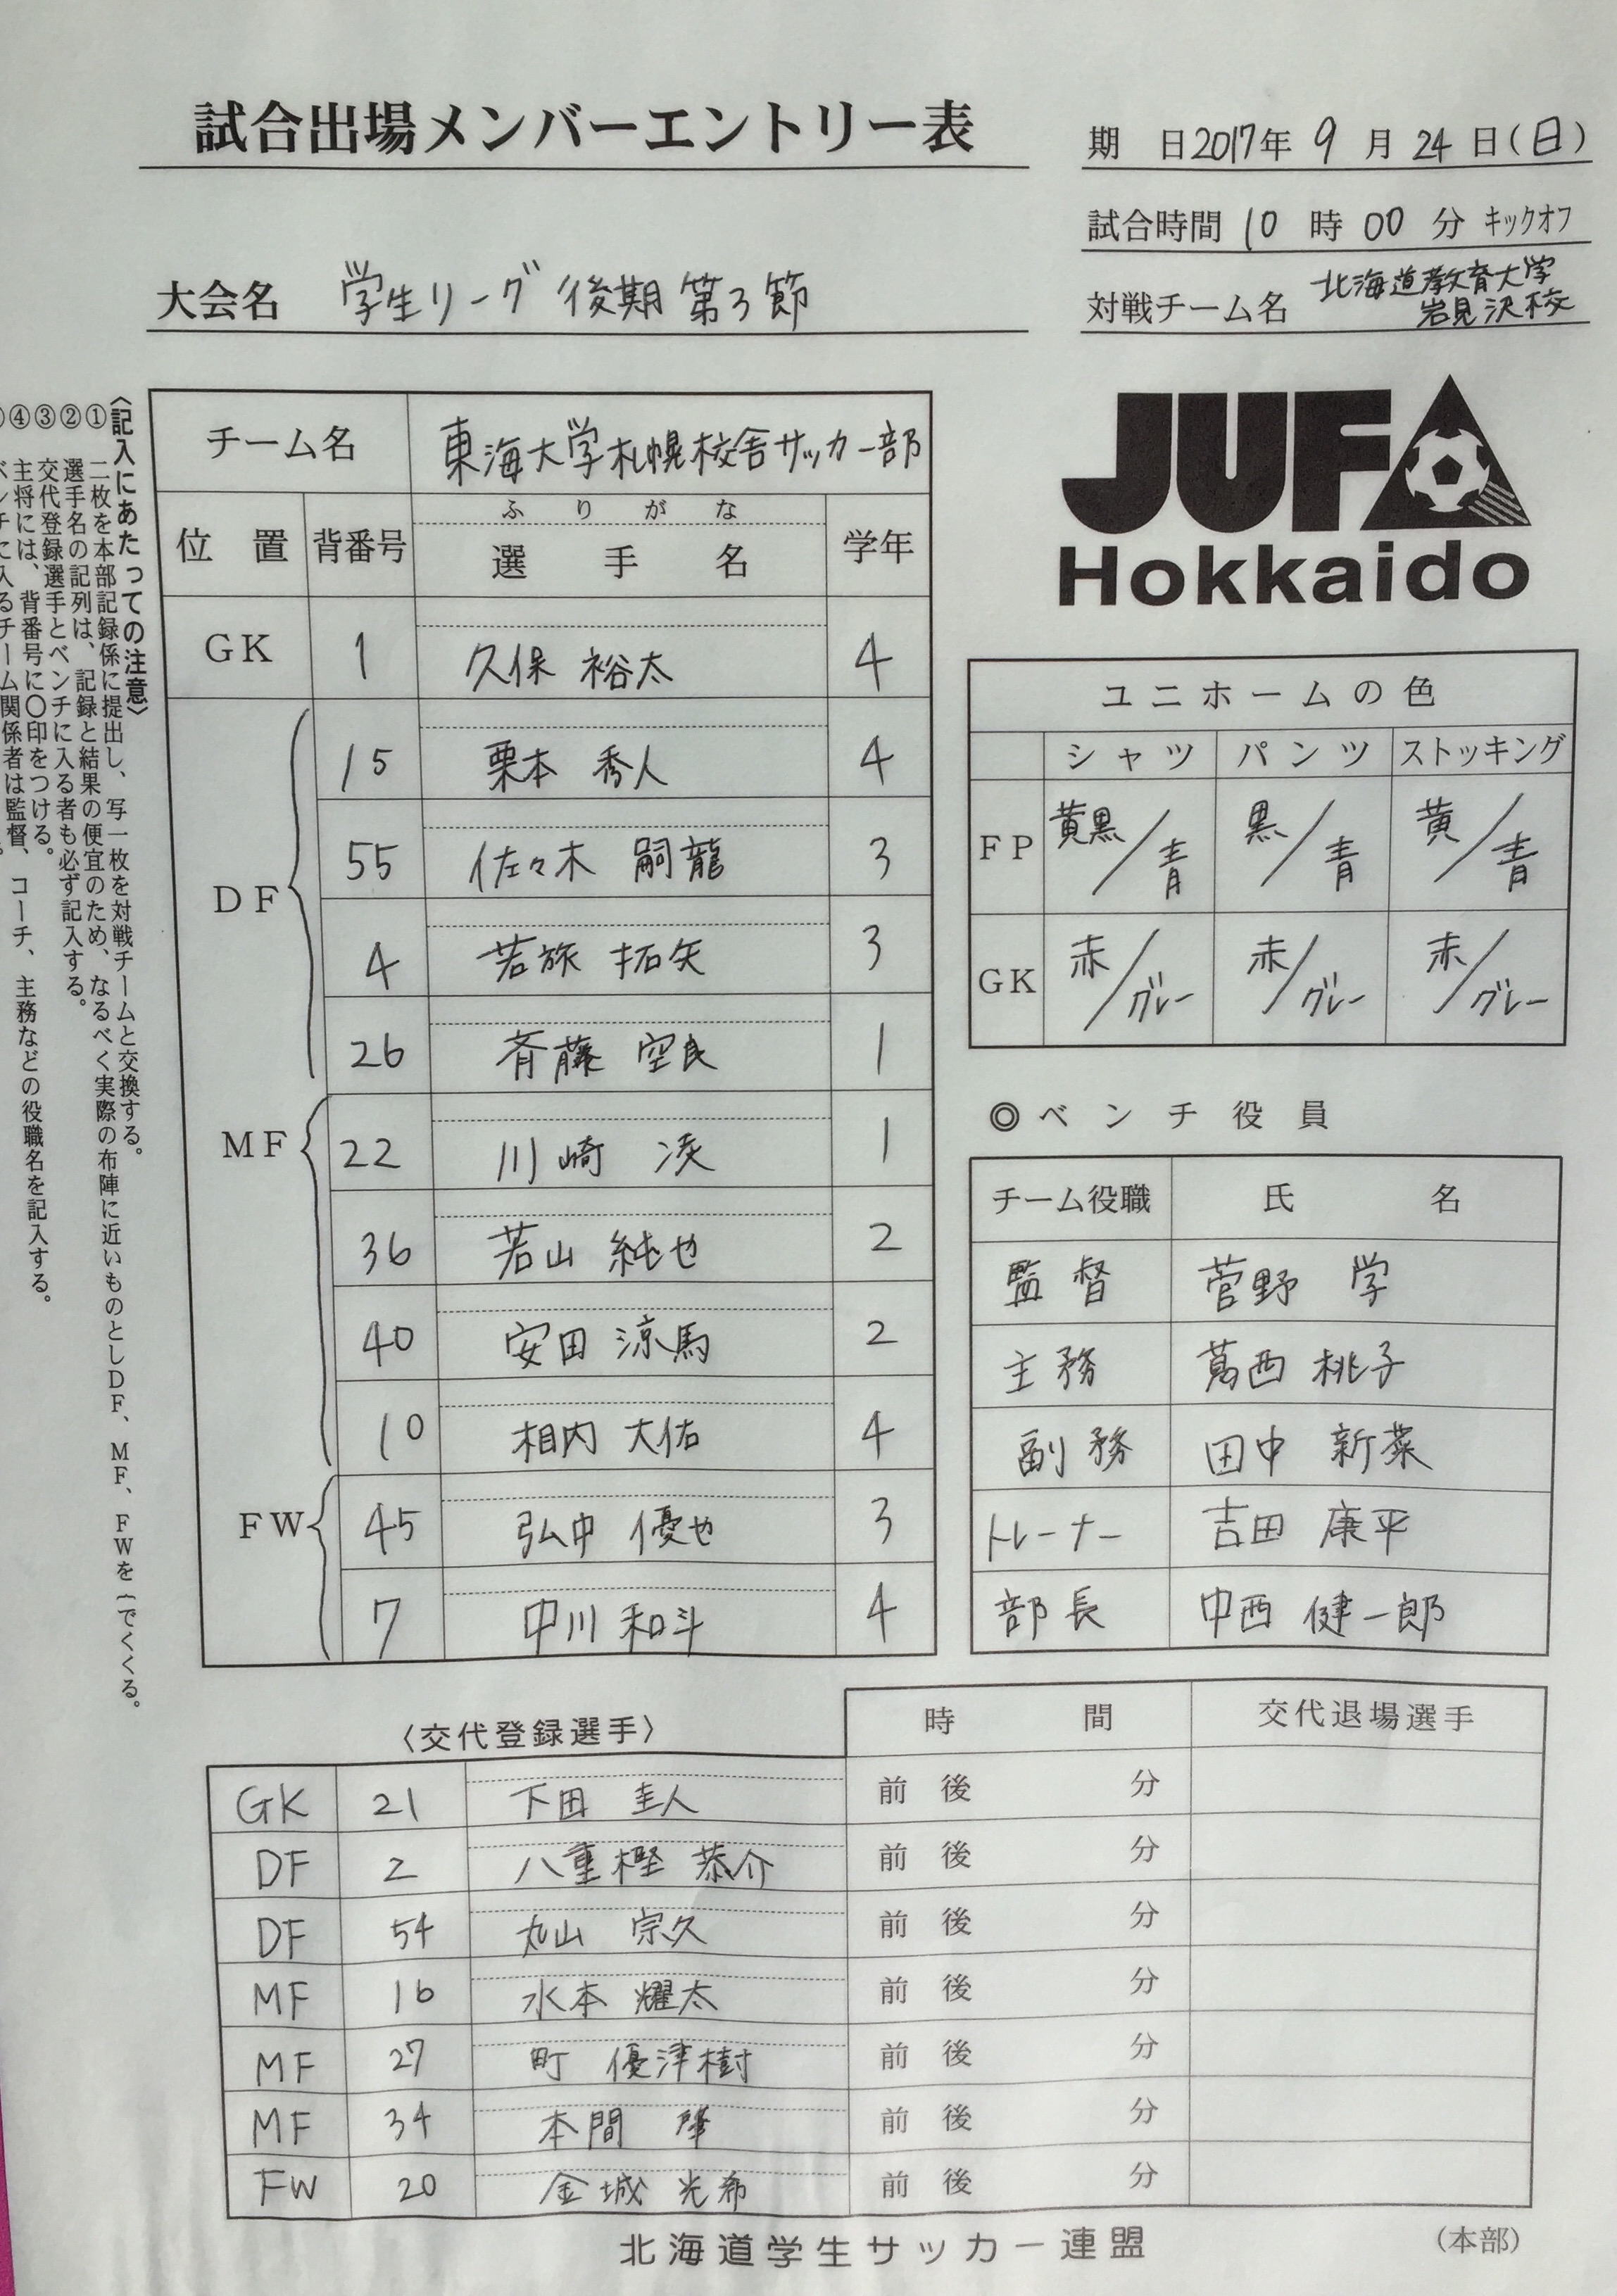 試合出場メンバーエントリー表
期 日 2017年 9 月 24 日(日)
試合時間 10 時 00 分 キックオフ
大会名 学生リーグ 後期 第3節
対戦チーム名 北海道教育大学
岩見沢校
JUFA
Hokkaido
〈記入にあたっての注意〉
① 二枚を本部記録係に提出し、写一枚を対戦チームと交換する。
② 選手名の記列は、記録と結果の便宜のため、なるべく実際の布陣に近いものとしDF、MF、FWを{でくくる。
③ 交代登録選手とベンチに入る者も必ず記入する。
④ 主将には、背番号に〇印をつける。
ベンチに入るチーム関係者は監督、コーチ、主務などの役職名を記入する。
チーム名 東海大学札幌校舎サッカー部
位 置 背番号 ふりがな 選手名 学年
GK 1 久保 裕太 4
DF 15 栗本 秀人 4
55 佐々木 嗣龍 3
4 若旅 拓矢 3
26 斉藤 空良 1
MF 22 川崎 凌 1
36 若山 純也 2
40 安田 涼馬 2
10 相内 大佑 4
FW 45 弘中 優也 3
7 中川 和斗 4
ユニホームの色
シャツ パンツ ストッキング
FP 黄黒/青 黒/青 黄/青
GK 赤/グレー 赤/グレー 赤/グレー
◎ベンチ役員
チーム役職 氏 名
監督 菅野 学
主務 葛西 桃子
副務 田中 新菜
トレーナー 吉田 康平
部長 中西 健一郎
〈交代登録選手〉 時 間 交代退場選手
GK 21 下田 圭人 前 後 分
DF 2 八重樫 恭介 前 後 分
DF 54 丸山 宗久 前 後 分
MF 16 水本 耀太 前 後 分
MF 27 町 優津樹 前 後 分
MF 34 本間 前 後 分
FW 20 金城 光希 前 後 分
北海道学生サッカー連盟
(本部)